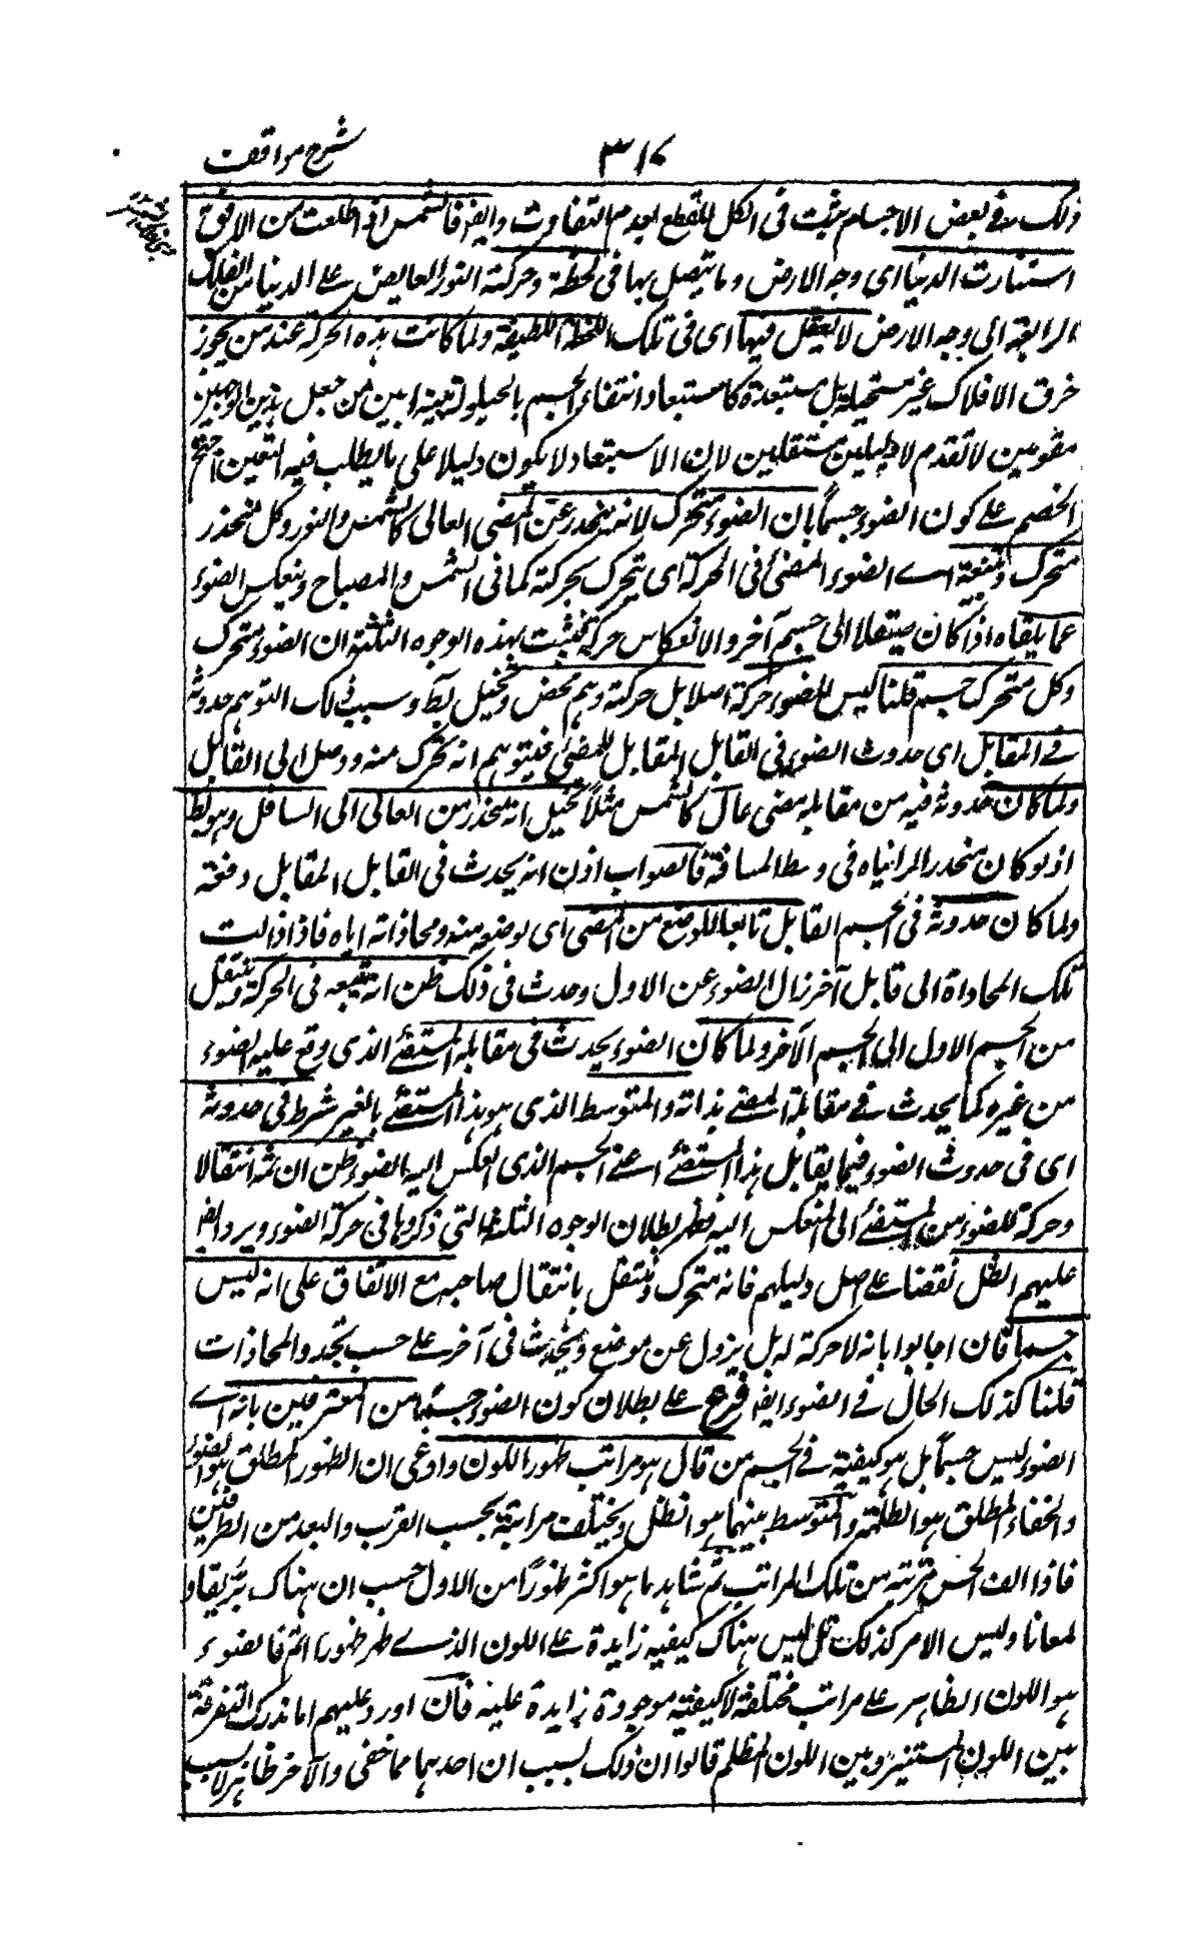 ٣١٧ شرح مواقف
ذلك في بعض الاجسام يثبت في الكل للقطع بعدم التفاوت وايضا فالشمس اذا طلعت من الافق
استنارت الدنيا اى وجه الارض وما يتصل بها في لحظة وحركة النور الفايض على الدنيا من الفلك
الرابعة الى وجه الارض لا يعقل فيها اى في تلك اللحظة اللطيفة ولما كانت هذه الحركة عند من يجوز
خرق الافلاك غير مستحيلة بل مستبعدة كاستبعاد انتفاء الجسم بالحيلولة بينه ابين من جعل هذين الوجهين
مقومين لا تقدم لا دليلين مستقلين لان الاستبعاد لا يكون دليلا على ما يطلب فيه اليقين احتج
الخصم على كون الضوء جسماً بان الضوء متحرك لانه منحدر عن المضئ العالى كالشمس والنور وكل منحدر
متحرك ويتبعه اى الضوء المضئ في الحركة اى يتحرك بحركته كما في الشمس والمصباح وينعكس الضوء
عما يلقاه اذا كان صيقلا الى جسم آخر والانعكاس حركة فثبت بهذه الوجوه الثلثة ان الضوء متحرك
وكل متحرك جسم قلنا ليس للضوء حركة اصلا بل حركته وهم محض وتخيل بط وسبب ذلك التوهم حدوثه
في المقابل اى حدوث الضوء في القابل المقابل للمضئ فيتوهم انه تحرك منه ووصل الى القابل
ولما كان حدوثه فيه من مقابلة مضئ عال كالشمس مثلاً تخيل انه ينحدر من العالى الى السافل وهو بط
اذ لو كان منحدرا لمرايناه في وسط المسافة فالصواب اذن انه يحدث في القابل المقابل دفعة
ولما كان حدوثه في الجسم القابل تابعا للوضع من المضئ اى لوضعه منه ومحاذاته اياه فاذا زالت
تلك المحاذاة الى قابل آخر زال الضوء عن الاول وحدث في ذلك ظن انه يتبعه في الحركة وينتقل
من الجسم الاول الى الجسم الآخر ولما كان الضوء يحدث في مقابلة المستضئ الذى وقع عليه الضوء
من غيره كما يحدث في مقابلة المضئ بذاته والمتوسط الذى هو هذا المستضئ بالغير شرط في حدوثه
اى في حدوث الضوء فيما يقابل هذا المستضئ اعنى الجسم الذى انعكس اليه الضوء ظن ان ثمه انتقالا
وحركة للضوء من المستضئ الى المنعكس اليه فظهر بطلان الوجوه الثلثة التى ذكروها في حركة الضوء ويرد ايضا
عليهم الظل نقضا على اصل دليلهم فانه متحرك وينتقل بانتقال صاحبه مع الاتفاق على انه ليس
جسما فان اجابوا بانه لا حركة له بل يزول عن موضع ويحدث في آخر على حسب تجدد المحاذات
قلنا كذلك الحال في الضوء ايضا فرع على بطلان كون الضوء جسما من المعترفين بانه اى
الضوء ليس جسماً بل هو كيفية في الجسم من قال هو مراتب ظهور اللون وادعى ان الظهور المطلق هو الضوء
والخفاء المطلق هو الظلمة والمتوسط بينهما هو الظل ويختلف مراتبه بحسب القرب والبعد من الطرفين
فاذا الف الحس مرتبة من تلك المراتب ثم شاهد ما هو اكثر ظهوراً من الاول حسب ان هناك بريقا و
لمعانا وليس الامر كذلك بل ليس هناك كيفيه زايدة على اللون الذى ظهر ظهورا اتم فالضوء
هو اللون الظاهر على مراتب مختلفة لا كيفية موجودة زايدة عليه فان اورد عليهم انا ندرك التفرقة
بين اللون المستنير وبين اللون المظلم قالوا ان ذلك بسبب ان احدهما خفى والآخر ظاهر لا بسبب